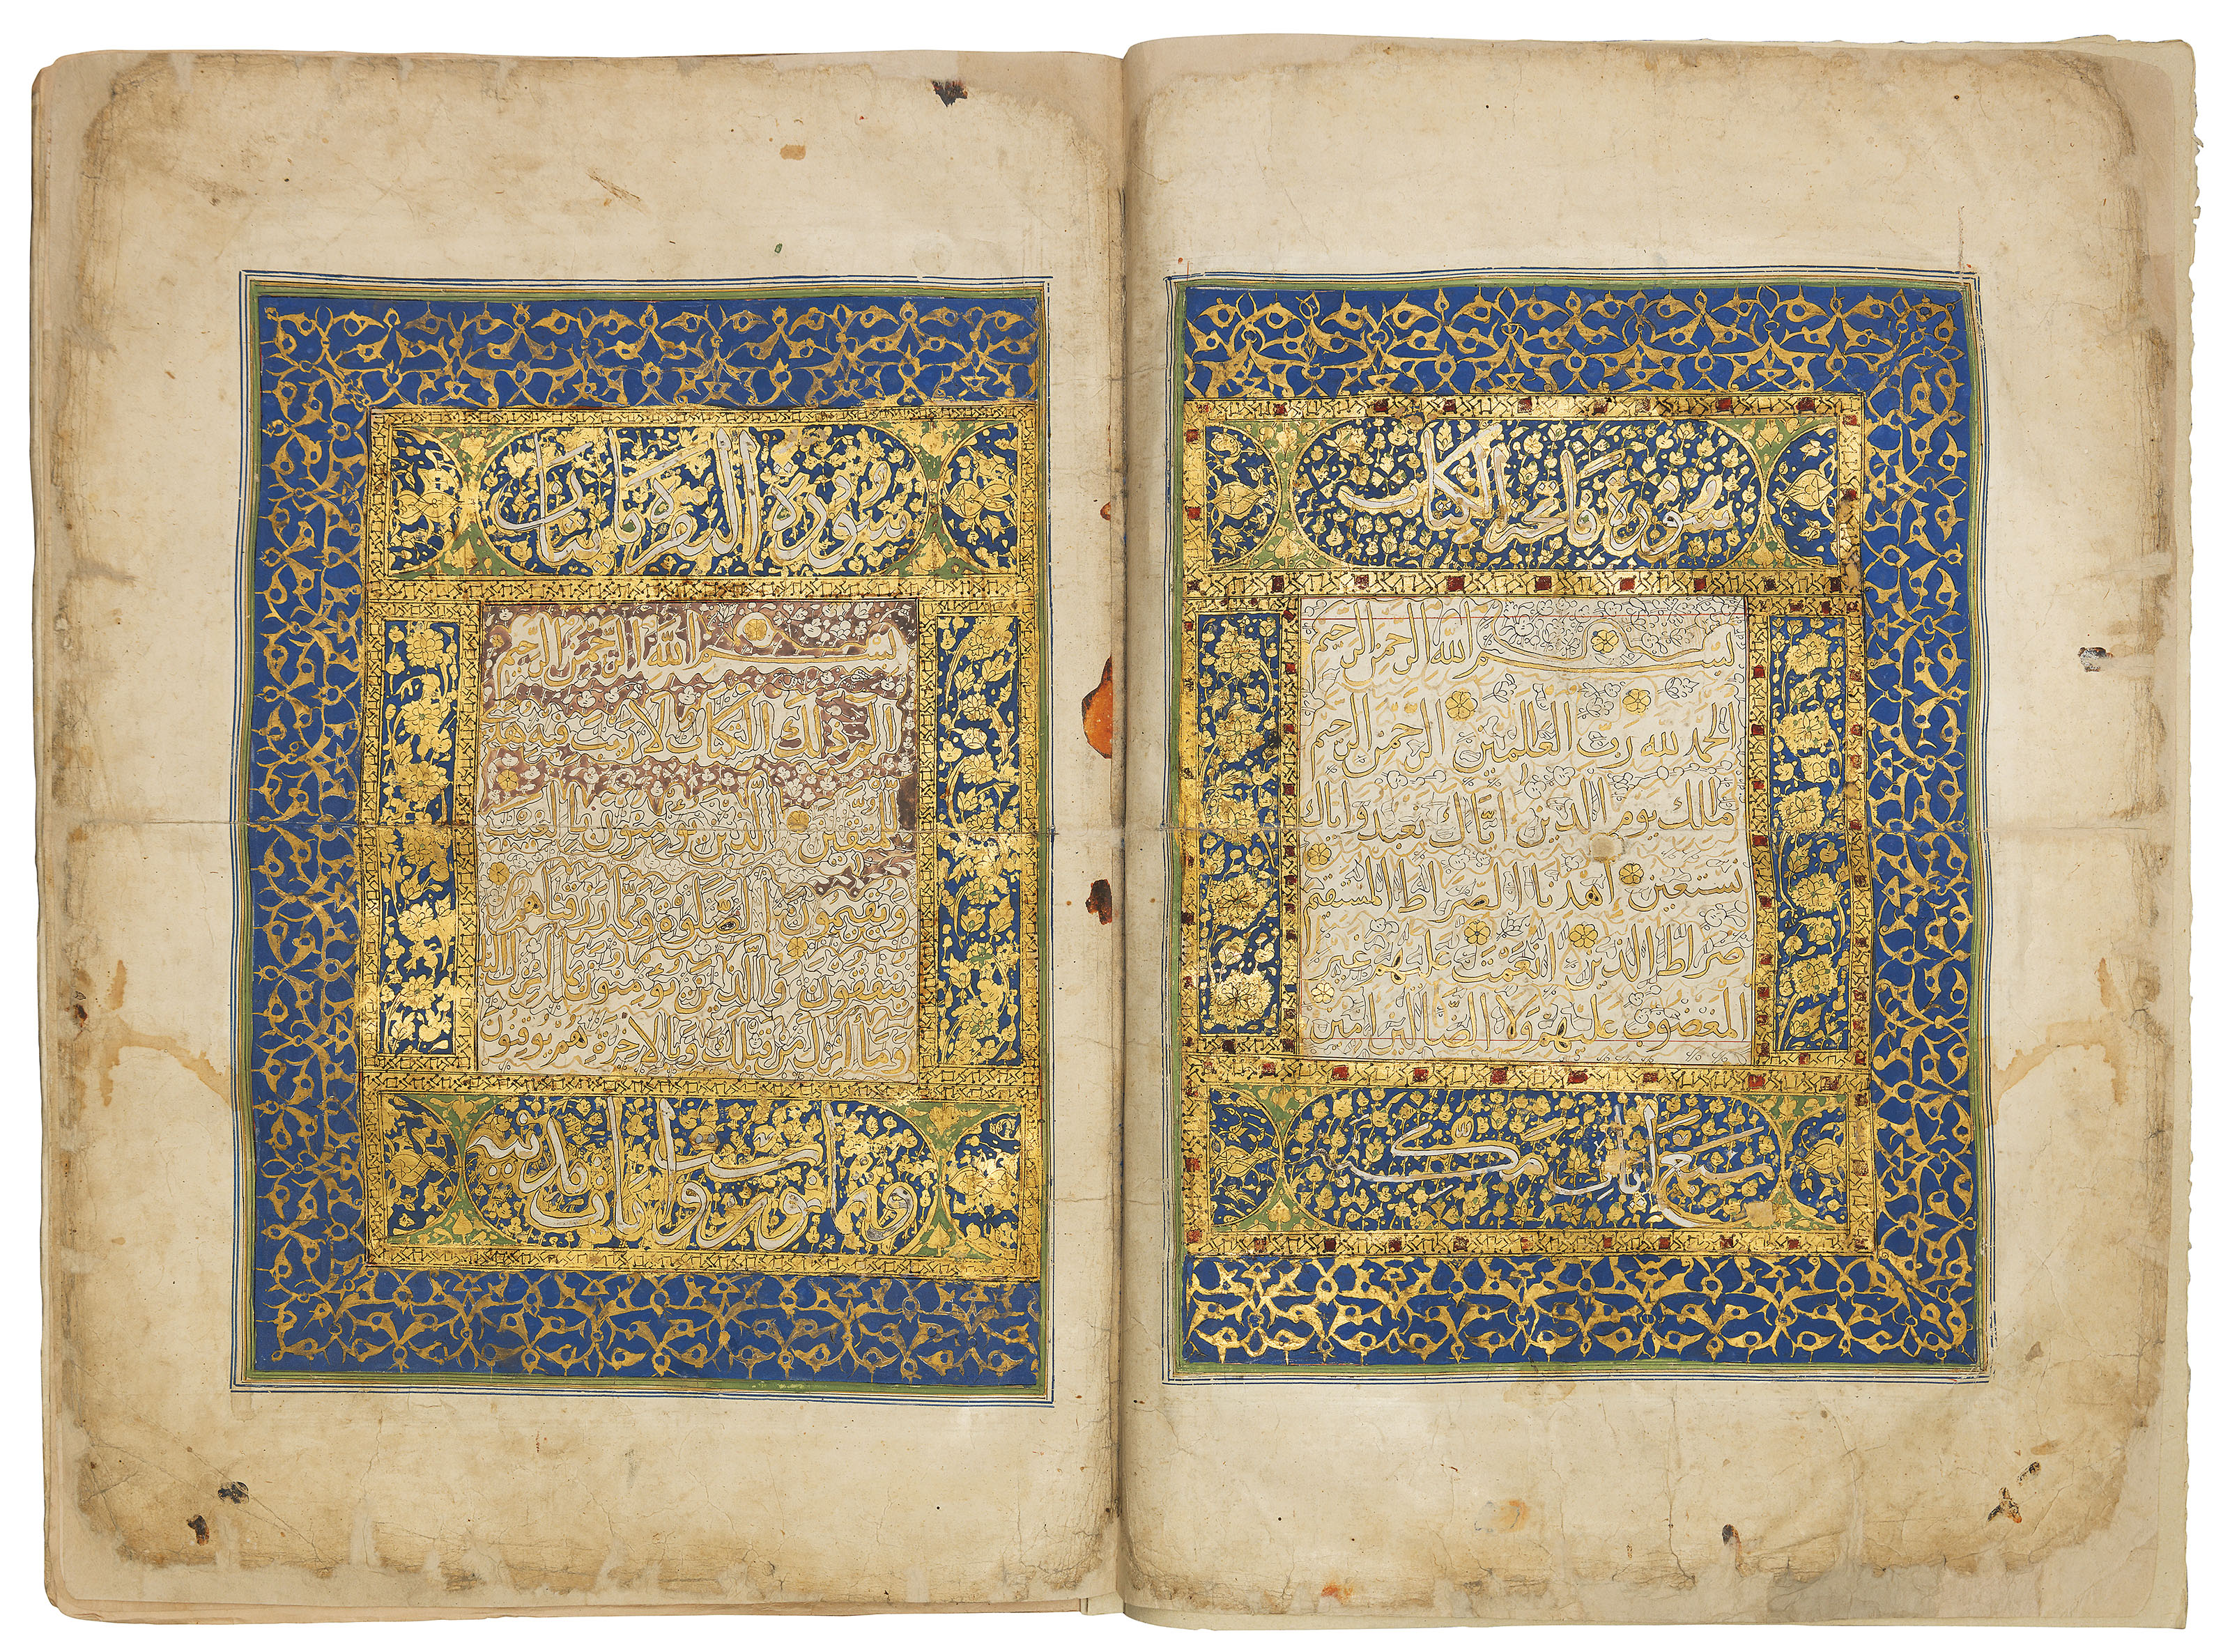 سورة فاتحة الكتاب
بسم الله الرحمن الرحيم
الحمد لله رب العلمين الرحمن الرحيم
ملك يوم الدين اياك نعبد واياك
نستعين اهدنا الصراط المستقيم
صراط الذين انعمت عليهم غير
المغضوب عليهم ولا الضالين امين
سبع ايات مكية
سورة البقرة مايتان
بسم الله الرحمن الرحيم
الم ذلك الكتاب لا ريب فيه هدى
للمتقين الذين يؤمنون بالغيب
ويقيمون الصلوة ومما رزقناهم
ينفقون والذين يؤمنون بما انزل
وما انزل من قبلك وبالاخرة هم يوقنون
وست ايات مدنية